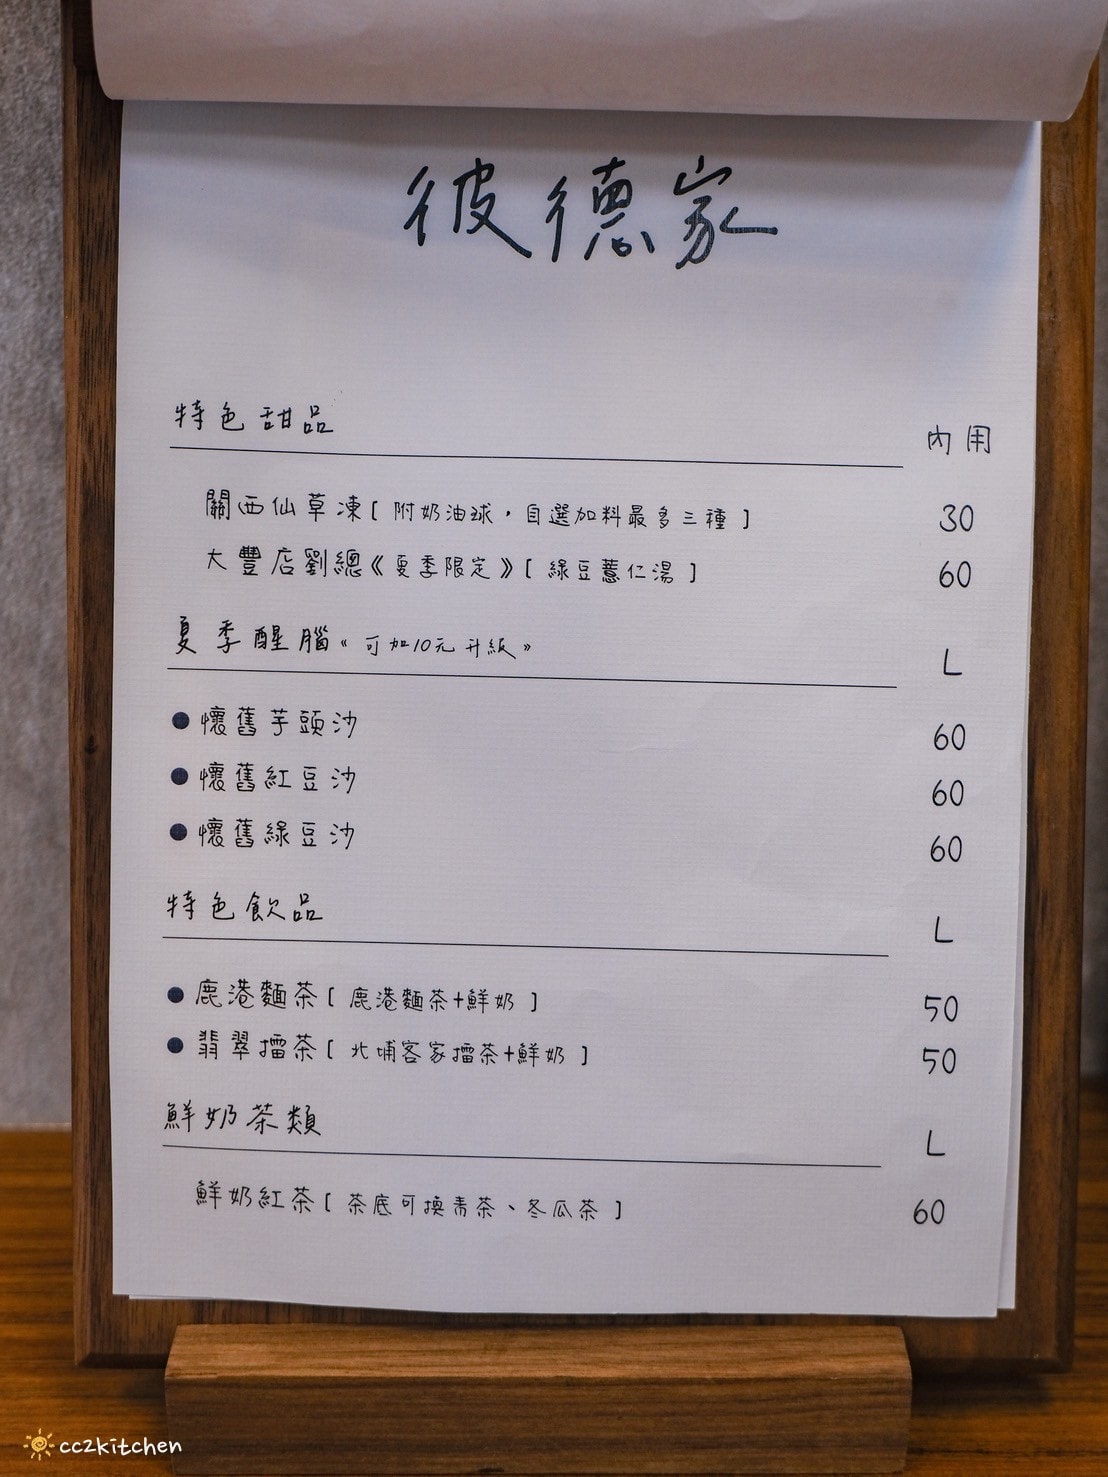 彼德家
特色甜品 內用
關西仙草凍[ 附奶油球，自選加料最多三種 ] 30
大豐店劉總《夏季限定》[ 綠豆薏仁湯 ] 60
夏季醒腦《可加10元升級》 L
●懷舊芋頭沙 60
●懷舊紅豆沙 60
●懷舊綠豆沙 60
特色飲品 L
●鹿港麵茶[ 鹿港麵茶+鮮奶 ] 50
●翡翠擂茶[ 北埔客家擂茶+鮮奶 ] 50
鮮奶茶類 L
鮮奶紅茶[ 茶底可換青茶、冬瓜茶 ] 60
cc2kitchen